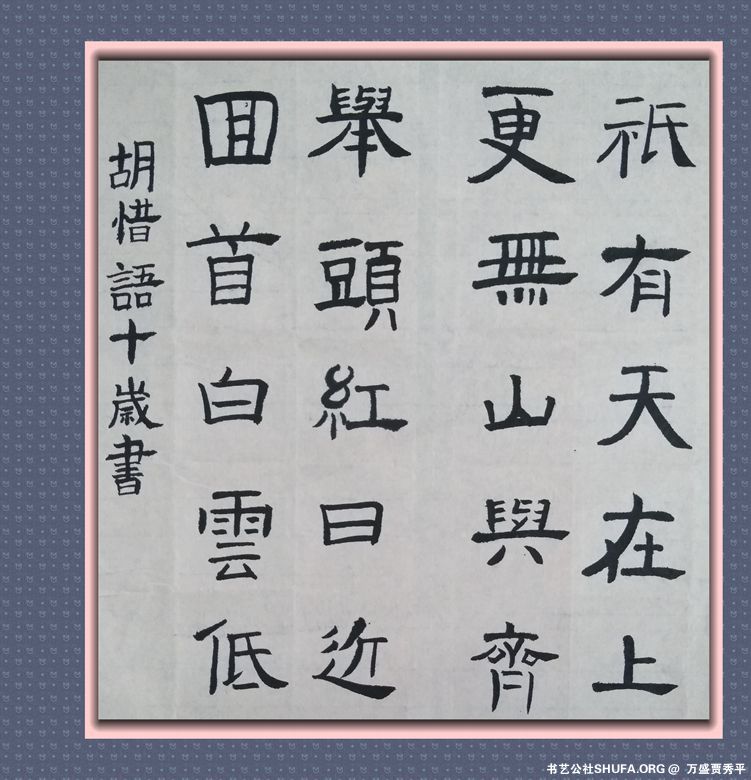 祇有天在上
更無山與齊
舉頭紅日近
囬首白雲低
胡惜語十歲書
书艺公社SHUFA.ORG @ 万盛贾秀平